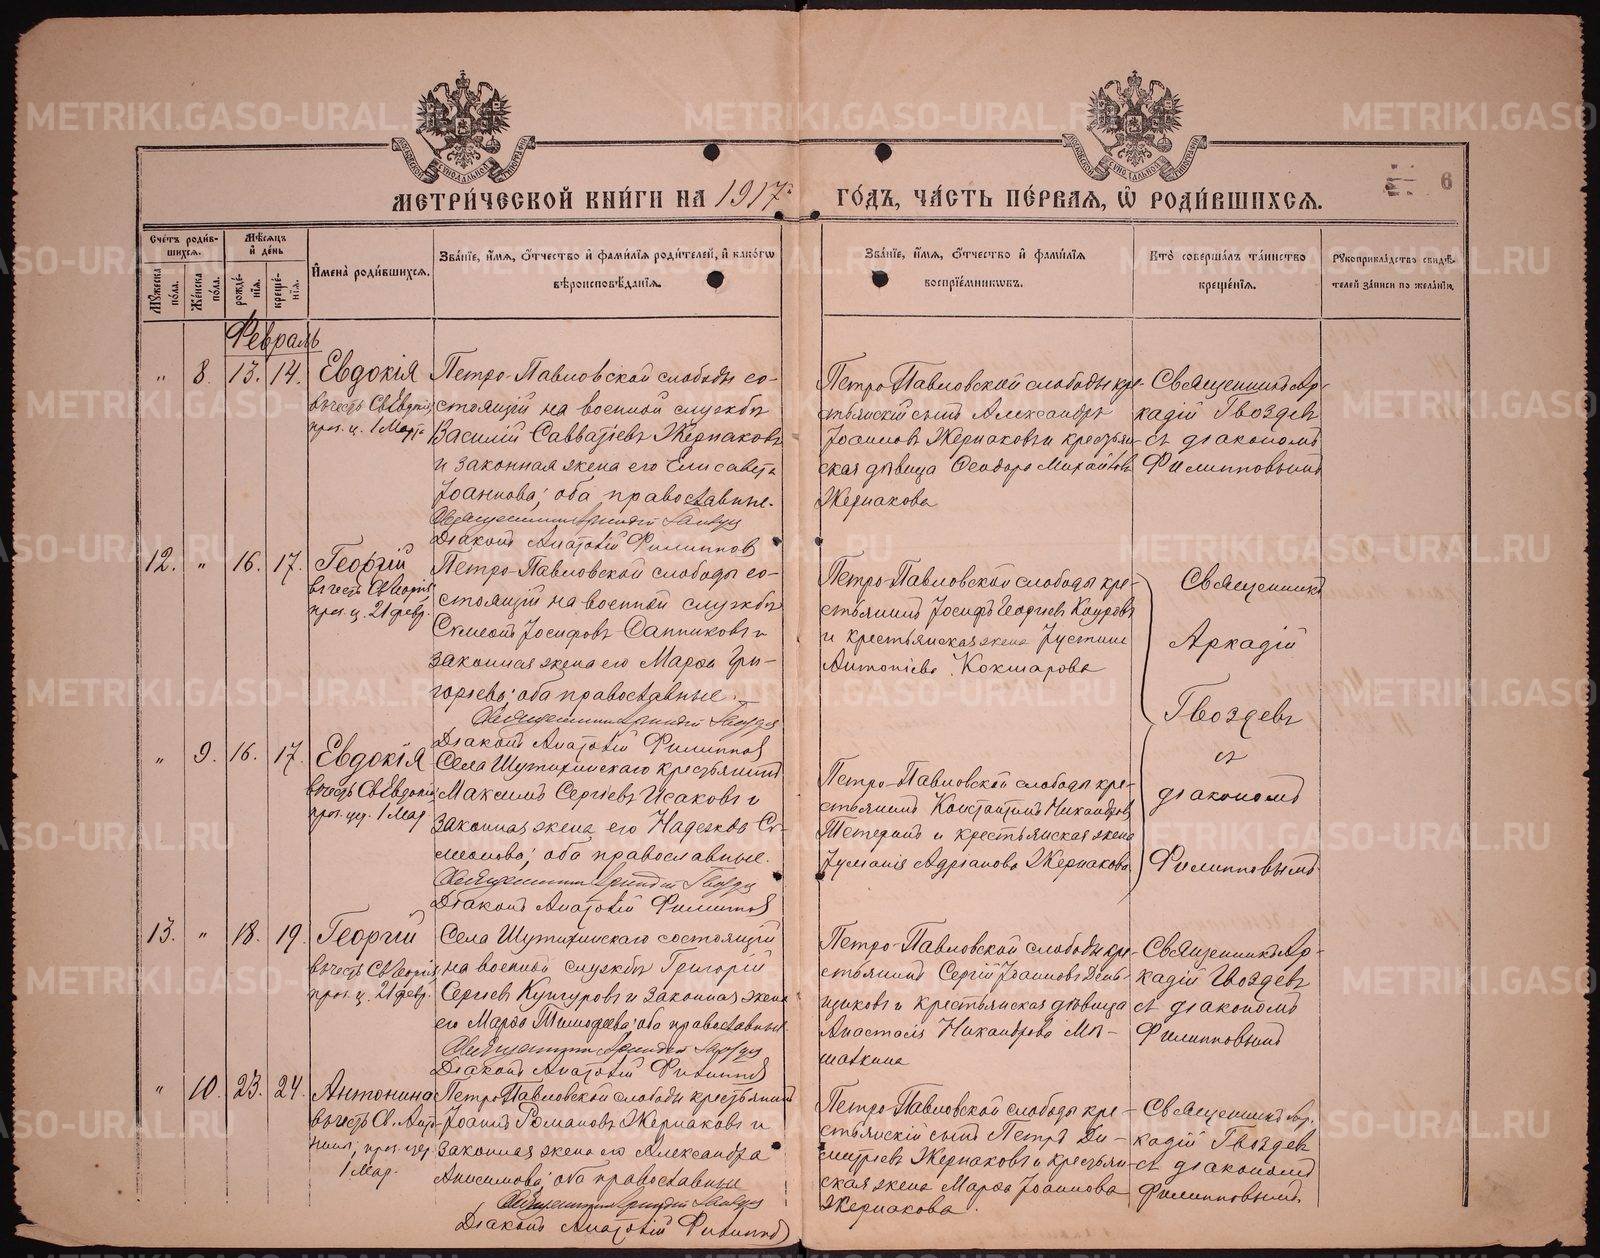 МЕТРИ́ЧЕСКОЙ КНИ́ГИ НА 1917 ГО́ДЪ, ЧА́СТЬ ПЕ́РВАЯ, Ѿ РОДИ́ВШИХСЯ.
6
Сче́тъ роди́в-
шихся.
Му́жеска по́ла.
Же́нска по́ла.
Мѣ́сяцъ и́ де́нь
рожде́-
нїя.
креще́-
нїя.
И҆мена̀ роди́вшихся.
Зва́нїе, и҆́мя, ѻ҆́тчество и҆ фами́лїя роди́телей, и҆ како́гѡ
вѣроисповѣ́данїя.
Зва́нїе, и҆́мя, ѻ҆́тчество и҆ фами́лїя
воспрїе́мникѡвъ.
Кто̀ соверша́лъ та́инство
креще́нїя.
Рукоприкла́дство свидѣ́-
телей за́писи по жела́нїю.
Февраль
" 8. 13. 14. Евдокія
въ честь Св Евдокіи,
праз. ц. 1 Марта
Петро-Павловской слободы со-
стоящій на военной службѣ
Василій Савватіевъ Жернаковъ
и законная жена его Елисавета
Іоаннова; оба православные.
Священникъ Аркадій Гвоздевъ
Діаконъ Анатолій Филипповъ
Петро-Павловской слободы кре-
стьянскій сынъ Александръ
Іоанновъ Жернаковъ и крестьян-
ская дѣвица Ѳеодора Михайлова
Жернакова
Священникъ Ар-
кадій Гвоздевъ
съ діакономъ
Филипповымъ
12. " 16. 17. Георгій
въ честь Св Георгія
праз. ц. 21 февр.
Петро-Павловской слободы со-
стоящій на военной службѣ
Симеонъ Іосифовъ Санниковъ и
законная жена его Марѳа Гри-
горьева; оба православные.
Священникъ Аркадій Гвоздевъ
Діаконъ Анатолій Филипповъ
Петро-Павловской слободы кре-
стьянинъ Іосифъ Георгіевъ
и крестьянская жена Іустина
Антоніева Кокшарова
Священникъ
Аркадій
Гвоздевъ
съ
діакономъ
Филипповымъ
" 9. 16. 17. Евдокія
въ честь Св Евдокіи,
праз. цер. 1 Мар.
Села Шутихинскаго крестьянинъ
Максимъ Сергіевъ Исаковъ и
законная жена его Надежда Си-
меонова; оба православные.
Священникъ Аркадій Гвоздевъ
Діаконъ Анатолій Филипповъ
Петро-Павловской слободы кре-
стьянинъ Константинъ Никандровъ
Тетеринъ и крестьянская жена
Іуліанія Адріанова Жернакова
13. " 18. 19. Георгій
въ честь Св Георгія
праз. ц. 21 февр.
Села Шутихинскаго состоящій
на военной службѣ Григорій
Сергіевъ Кунгуровъ и законная жена
его Марѳа Тимоѳеева; оба православные
Священникъ Аркадій Гвоздевъ
Діаконъ Анатолій Филипповъ
Петро-Павловской слободы кре-
стьянинъ Сергій Іоанновъ День-
щиковъ и крестьянская дѣвица
Анастасія Никандрова Мы-
шаткина
Священникъ Ар-
кадій Гвоздевъ
съ діакономъ
Филипповымъ
" 10. 23. 24. Антонина
въ честь Св. Анто-
нины, праз. цер.
1 Мар.
Петро-Павловской слободы крестьянинъ
Іоаннъ Романовъ Жернаковъ и
законная жена его Александра
Анисимова; оба православные
Священникъ Аркадій Гвоздевъ
Діаконъ Анатолій Филипповъ
Петро-Павловской слободы кре-
стьянскій сынъ Петръ Ди-
митріевъ Жернаковъ и крестьян-
ская жена Марѳа Іоаннова
Жернакова.
Священникъ Ар-
кадій Гвоздевъ
съ діакономъ
Филипповымъ.
METRIKI.GASO-URAL.RU